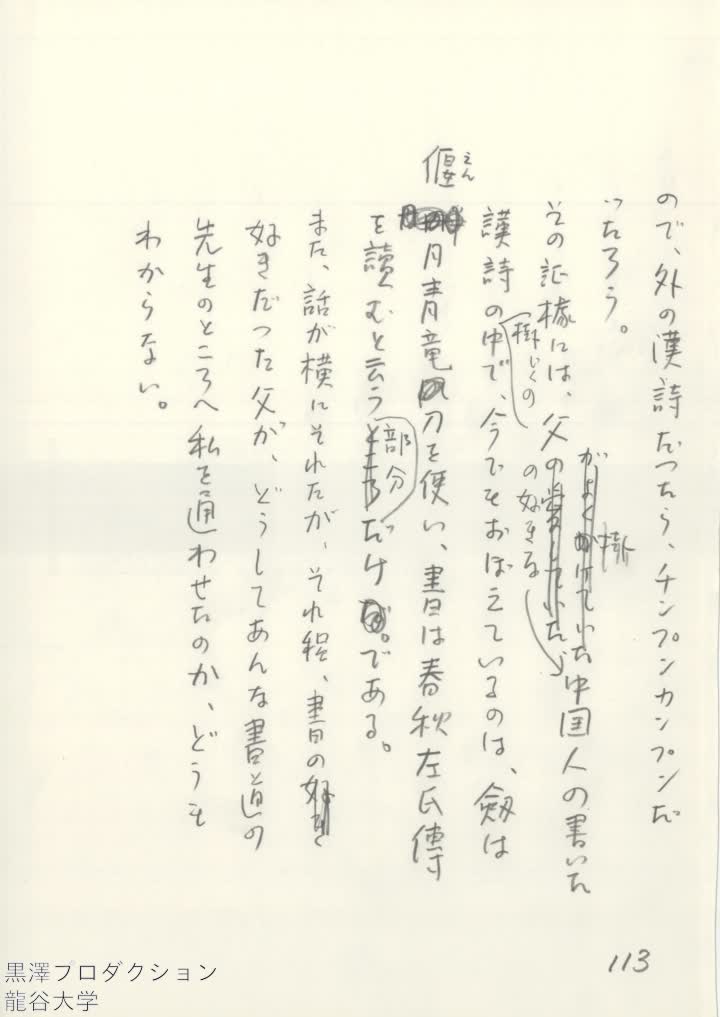 ので、外の漢詩だつたら、チンプンカンプンだ
つたろう。
その証據には、父の好きな中国人の書いた
掛軸の
漢詩の中で、今でもおぼえているのは、劔は
偃月青竜刀を使い、書は春秋左氏傳
えん
を讀むと云う部分だけである。
また、話が横にそれたが、それ程、書の
好きだった父が、どうしてあんな書道の
先生のところへ私を通わせたのか、どうも
わからない。
113
黒澤プロダクション
龍谷大学